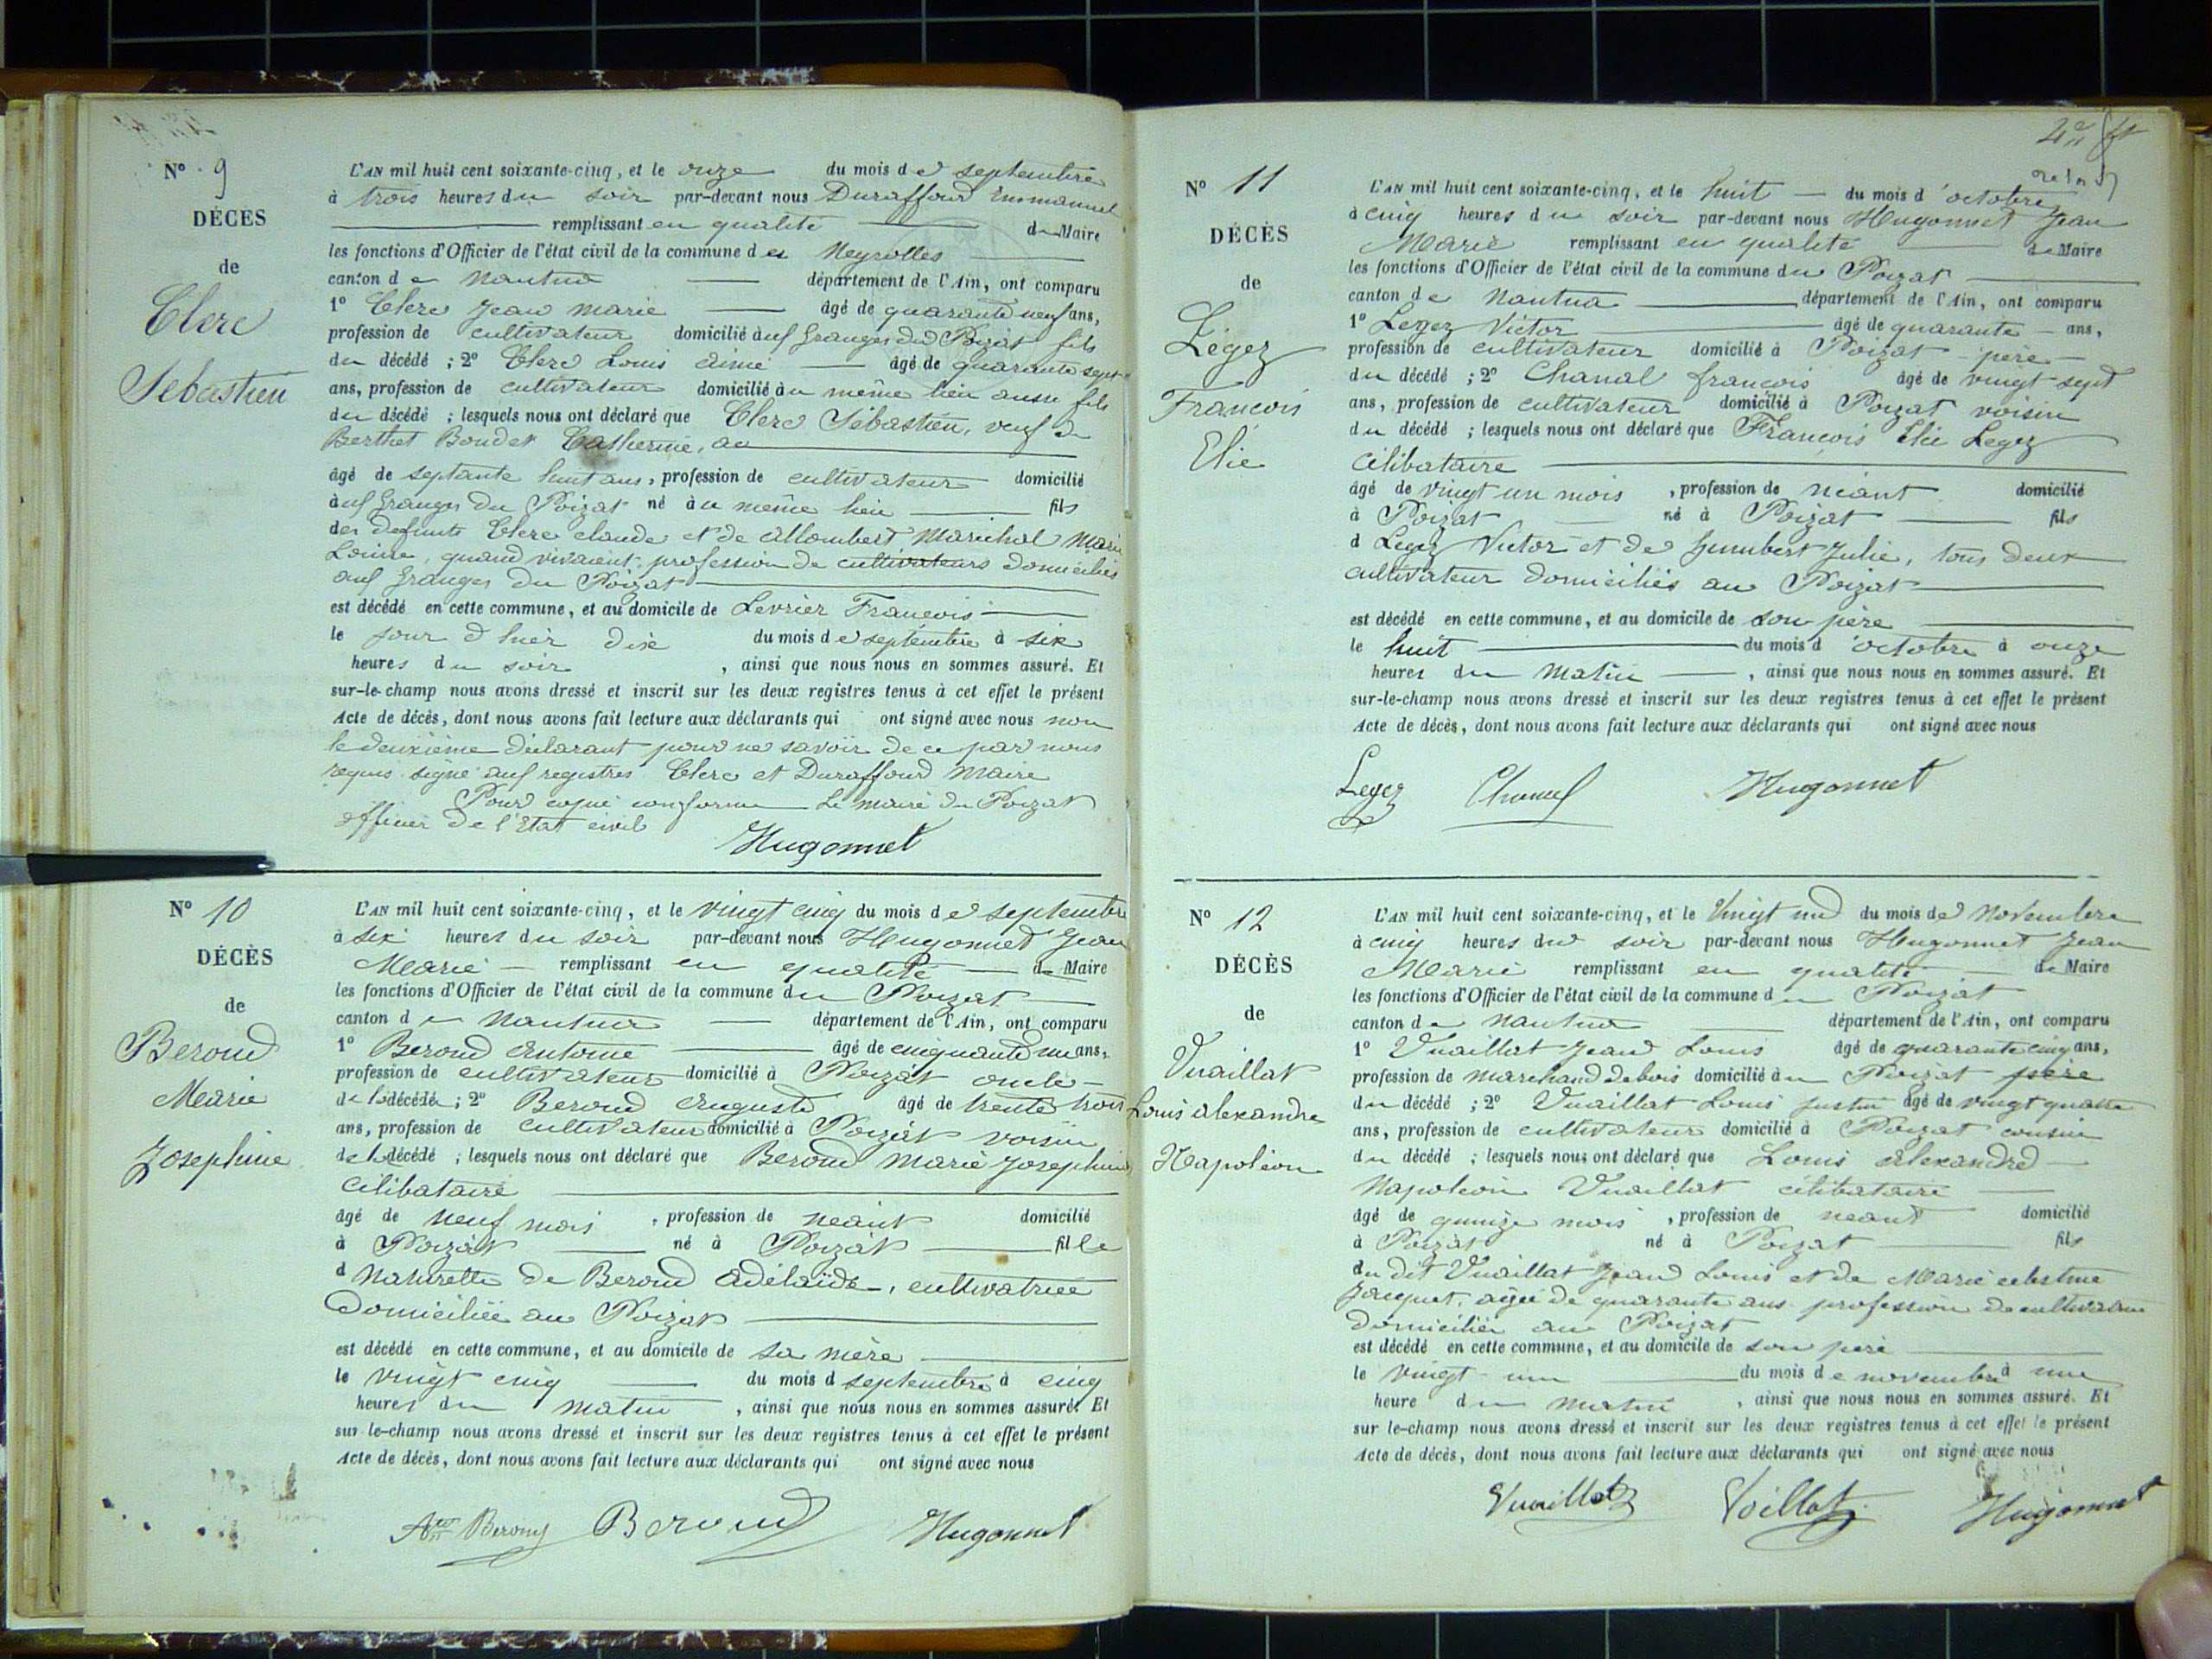 N° 9
DÉCÈS
de
Clerc
Sébastien
L'AN mil huit cent soixante-cinq, et le onze du mois de septembre
à trois heures du soir par-devant nous Duraffourd Emmanuel
remplissant en qualité de Maire
les fonctions d'Officier de l'état civil de la commune des Neyrolles
canton de Nantua département de l'Ain, ont comparu
1° Clerc Jean Marie âgé de quarante neuf ans,
profession de cultivateur domicilié aux Granges du Poizat fils
du décédé ; 2° Clerc Louis aimé âgé de quarante sept
ans, profession de cultivateur domicilié au même lieu aussi fils
du décédé ; lesquels nous ont déclaré que Clerc Sébastien, veuf de
Berthet Bondet Catherine,
âgé de septante huit ans, profession de cultivateur domicilié
aux Granges du Poizat né au même lieu fils
des defunts Clerc claude et de allombert Maréchal Marie
Louise, quand vivaient profession de cultivateurs domiciliés
aux Granges du Poizat
est décédé en cette commune, et au domicile de Levrier François
le jour d'hier dix du mois de septembre à six
heures du soir, ainsi que nous nous en sommes assuré. Et
sur-le-champ nous avons dressé et inscrit sur les deux registres tenus à cet effet le présent
Acte de décès, dont nous avons fait lecture aux déclarants qui ont signé avec nous non
le deuxième déclarant pour ne savoir de ce par nous
requis signé aux registres Clerc et Duraffourd Maire
Pour copie conforme Le maire du Poizat
officier de l'Etat civil
Hugonnet
N° 10
DÉCÈS
de
Beroud
Marie
Josephine
L'AN mil huit cent soixante-cinq, et le vingt cinq du mois de septembre
à six heures du soir par-devant nous Hugonnet Jean
Marie remplissant en qualité de Maire
les fonctions d'Officier de l'état civil de la commune du Poizat
canton de Nantua département de l'Ain, ont comparu
1° Beroud Antoine âgé de cinquante un ans,
profession de cultivateur domicilié à Poizat oncle
de la décédée ; 2° Beroud Auguste âgé de trente trois
ans, profession de cultivateur domicilié à Poizat voisin
de la décédé ; lesquels nous ont déclaré que Beroud Marie Josephine
célibataire
âgé de neuf mois, profession de neant domicilié
à Poizat né à Poizat fille
d naturelle de Beroud adélaïde, cultivatrice
domiciliée au Poizat
est décédé en cette commune, et au domicile de sa mère
le vingt cinq du mois d septembre à cinq
heures du matin, ainsi que nous nous en sommes assuré. Et
sur-le-champ nous avons dressé et inscrit sur les deux registres tenus à cet effet le présent
Acte de décès, dont nous avons fait lecture aux déclarants qui ont signé avec nous
Beroud Hugonnet
N° 11
DÉCÈS
de
Légez
François
Elie
L'AN mil huit cent soixante-cinq, et le huit du mois d'octobre
à cinq heures du soir par-devant nous Hugonnet Jean
Marie remplissant en qualité de Maire
les fonctions d'Officier de l'état civil de la commune du Poizat
canton de Nantua département de l'Ain, ont comparu
1° Legez Victor âgé de quarante ans,
profession de cultivateur domicilié à Poizat père
du décédé ; 2° Chanal françois âgé de vingt sept
ans, profession de cultivateur domicilié à Poizat voisin
du décédé ; lesquels nous ont déclaré que François Elie Legez
célibataire
âgé de vingt un mois, profession de néant domicilié
à Poizat né à Poizat fils
d Legez Victor et de Humbert Julie, tous deux
cultivateur domiciliés au Poizat
est décédé en cette commune, et au domicile de son père
le huit du mois d'octobre à onze
heures du matin, ainsi que nous nous en sommes assuré. Et
sur-le-champ nous avons dressé et inscrit sur les deux registres tenus à cet effet le présent
Acte de décès, dont nous avons fait lecture aux déclarants qui ont signé avec nous
Legez Hugonnet
N° 12
DÉCÈS
de
Vuaillat
Louis alexandre
Napoléon
L'AN mil huit cent soixante-cinq, et le vingt un du mois de Novembre
à cinq heures du soir par-devant nous Hugonnet Jean
Marie remplissant en qualité de Maire
les fonctions d'Officier de l'état civil de la commune du Poizat
canton de Nantua département de l'Ain, ont comparu
1° Vuaillat Jean Louis âgé de quarante cinq ans,
profession de marchand de bois domicilié au Poizat père
du décédé ; 2° Vuaillat Louis justin âgé de vingt quatre
ans, profession de cultivateur domicilié à Poizat cousin
du décédé ; lesquels nous ont déclaré que Louis alexandre
Napoléon Vuaillat célibataire
âgé de quinze mois, profession de neant domicilié
à Poizat né à Poizat fils
du dit Vuaillat Jean Louis et de Marie celestine
Jacquet, agée de quarante ans profession de cultivatrice
domiciliée au Poizat
est décédé en cette commune, et au domicile de son père
le vingt un du mois de novembre à une
heure du matin, ainsi que nous nous en sommes assuré. Et
sur le-champ nous avons dressé et inscrit sur les deux registres tenus à cet effet le présent
Acte de décès, dont nous avons fait lecture aux déclarants qui ont signé avec nous
Vuaillat Voillat Hugonnet